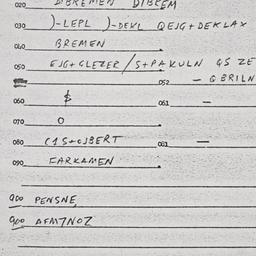 020 DIBREM
030 )-LEPL )-DEKL QEJG+DEKLAX
040 BREMEN
050 EJG+GLEZER/S+PAKULN QS ZE
052 - GBRILN
060 $ 061 -
070 O
080 (1S+OJBERT 081 -
090 FARKAMEN
900 PENSNE,
900 AFM7NOZ